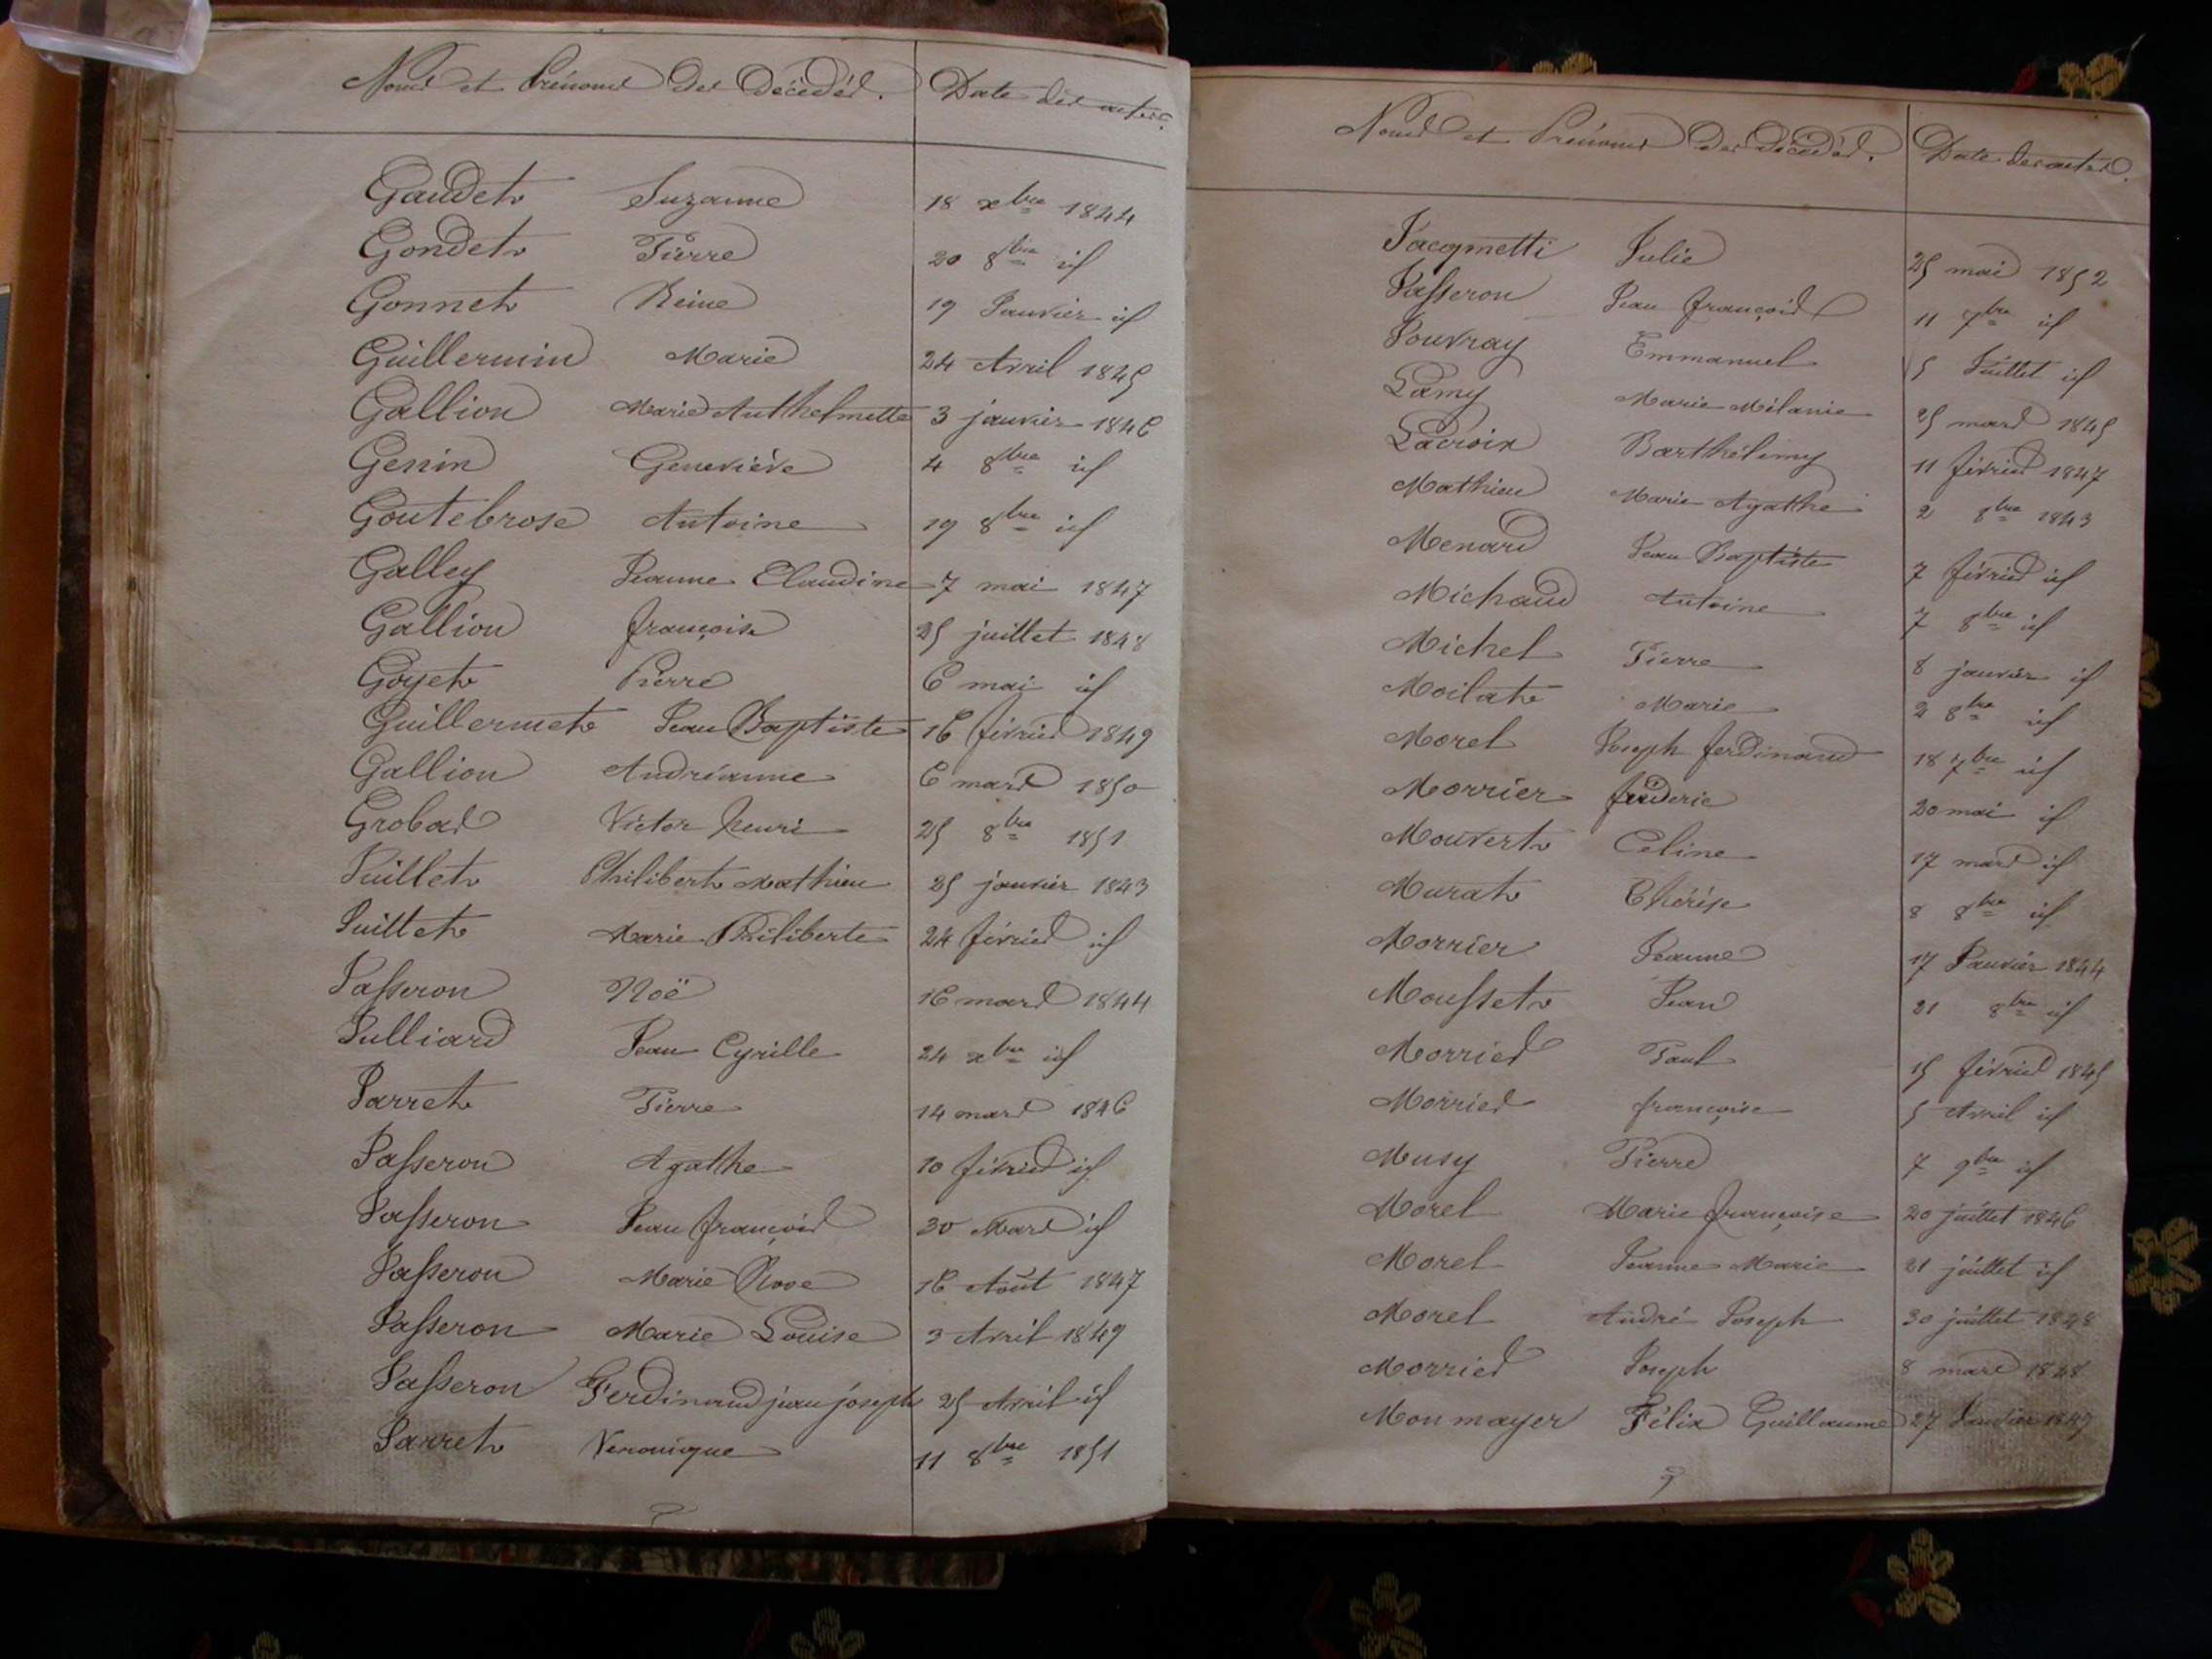 Noms et Prénoms des Décédés. Date des actes.
Gaudet Suzanne 18 xbre 1844
Gondet Pierre 20 8bre id
Gonnet Reine 19 Janvier id
Guillermin Marie 24 Avril 1845
Gallion Marie Anthelmette 3 janvier 1846
Genin Geneviève 4 8bre id
Goutebrose Antoine 19 8bre id
Galley Jeanne Claudine 7 mai 1847
Gallion françoise 25 juillet 1848
Goyet Pierre 6 mai id
Guillermet Jean Baptiste 16 février 1849
Gallion Andréanne 6 mars 1850
Grobas Victor henri 25 8bre 1851
Juillet Philibert Mathieu 25 janvier 1843
Juillet Marie Philiberte 24 février id
Jasseron Noë 16 mars 1844
Julliard Jean Cyrille 24 xbre id
Jarret Pierre 14 mars 1846
Jasseron Agathe 10 février id
Jasseron Jean françois 30 Mars id
Jasseron Marie Rose 16 Août 1847
Jasseron Marie Louise 3 Avril 1849
Jasseron Ferdinand jean joseph 25 Avril id
Jarret Veronique 11 8bre 1851
Noms et Prénoms des Décédés. Date des actes.
Jacqmetti Julie 25 mai 1852
Jasseron Jean françois 11 7bre id
Jouvray Emmanuel 5 Juillet id
Lamy Marie Mélanie 25 mars 1845
Lacroix Barthélimy 11 février 1847
Mathieu Marie Agathe 2 8bre 1843
Menard Jean Baptiste 7 février id
Michaud Antoine 7 8bre id
Michel Pierre 8 janvier id
Moilat Marie 2 8bre id
Morel Joseph ferdinand 18 7bre id
Morrier 20 mai id
Mouvert Celine 17 mars id
Murat Thérèse 8 8bre id
Morrier Jeanne 17 Janvier 1844
Mousset Jean 21 8bre id
Morrier Paul 15 février 1845
Morrier françoise 5 Avril id
Musy Pierre 7 9bre id
Morel Marie françoise 20 juillet 1846
Morel Jeanne Marie 21 juillet id
Morel André Joseph 30 juillet 1848
Morrier Joseph 8 mars 1848
Monmayer Félix Guillaume 27 Janvier 1849